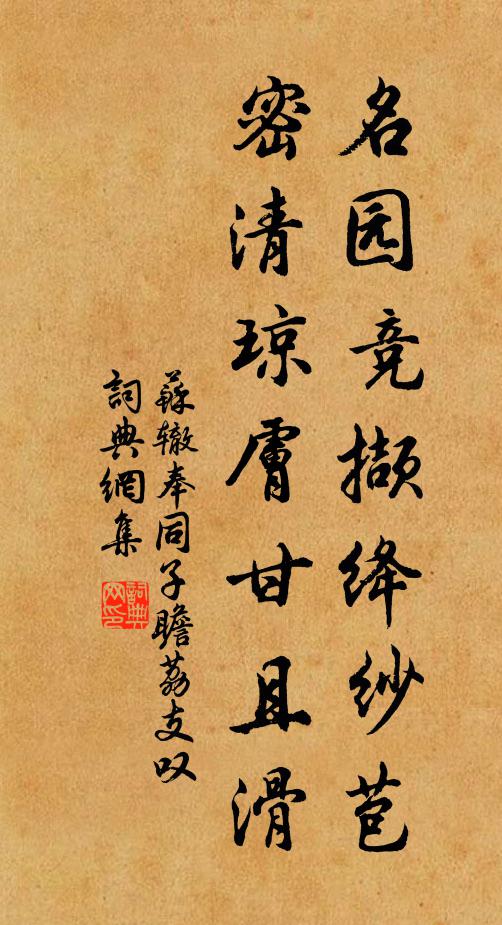 名园竞撷绛纱苞
密清琼膚甘且滑
蘇辙奉同子瞻荔支叹
詞典網集
詞典网印